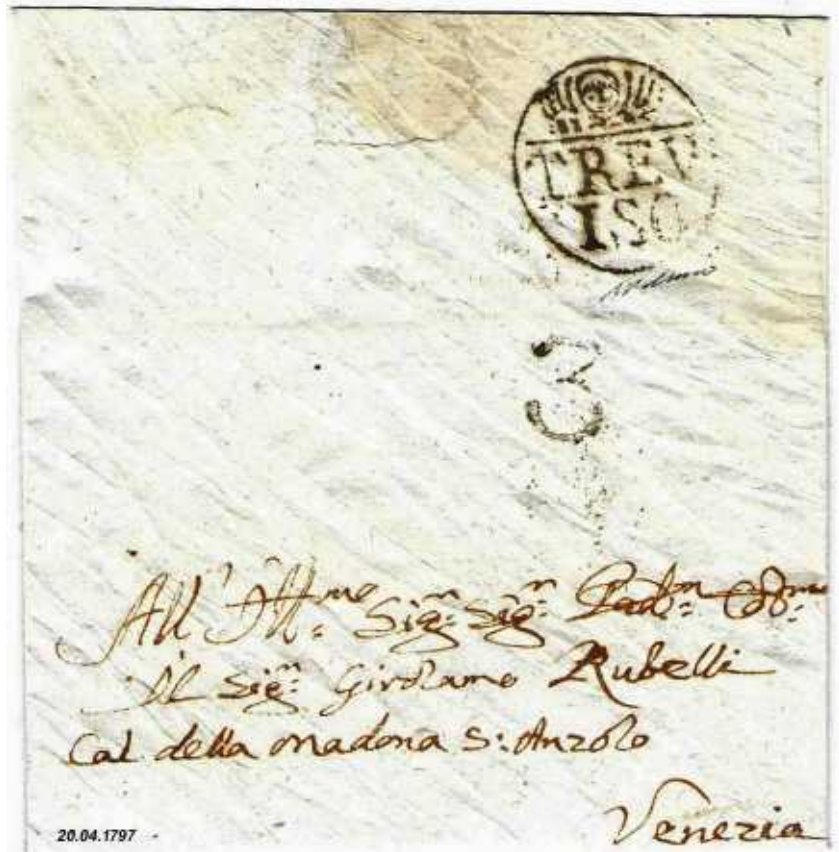 TREV
ISO
3
All' Ill:mo Sig:r Sig:r Pad:n Col:mo
Il Sig:r Girolamo Rubelli
Cal della Madona S: Anzolo
Venezia
20.04.1797